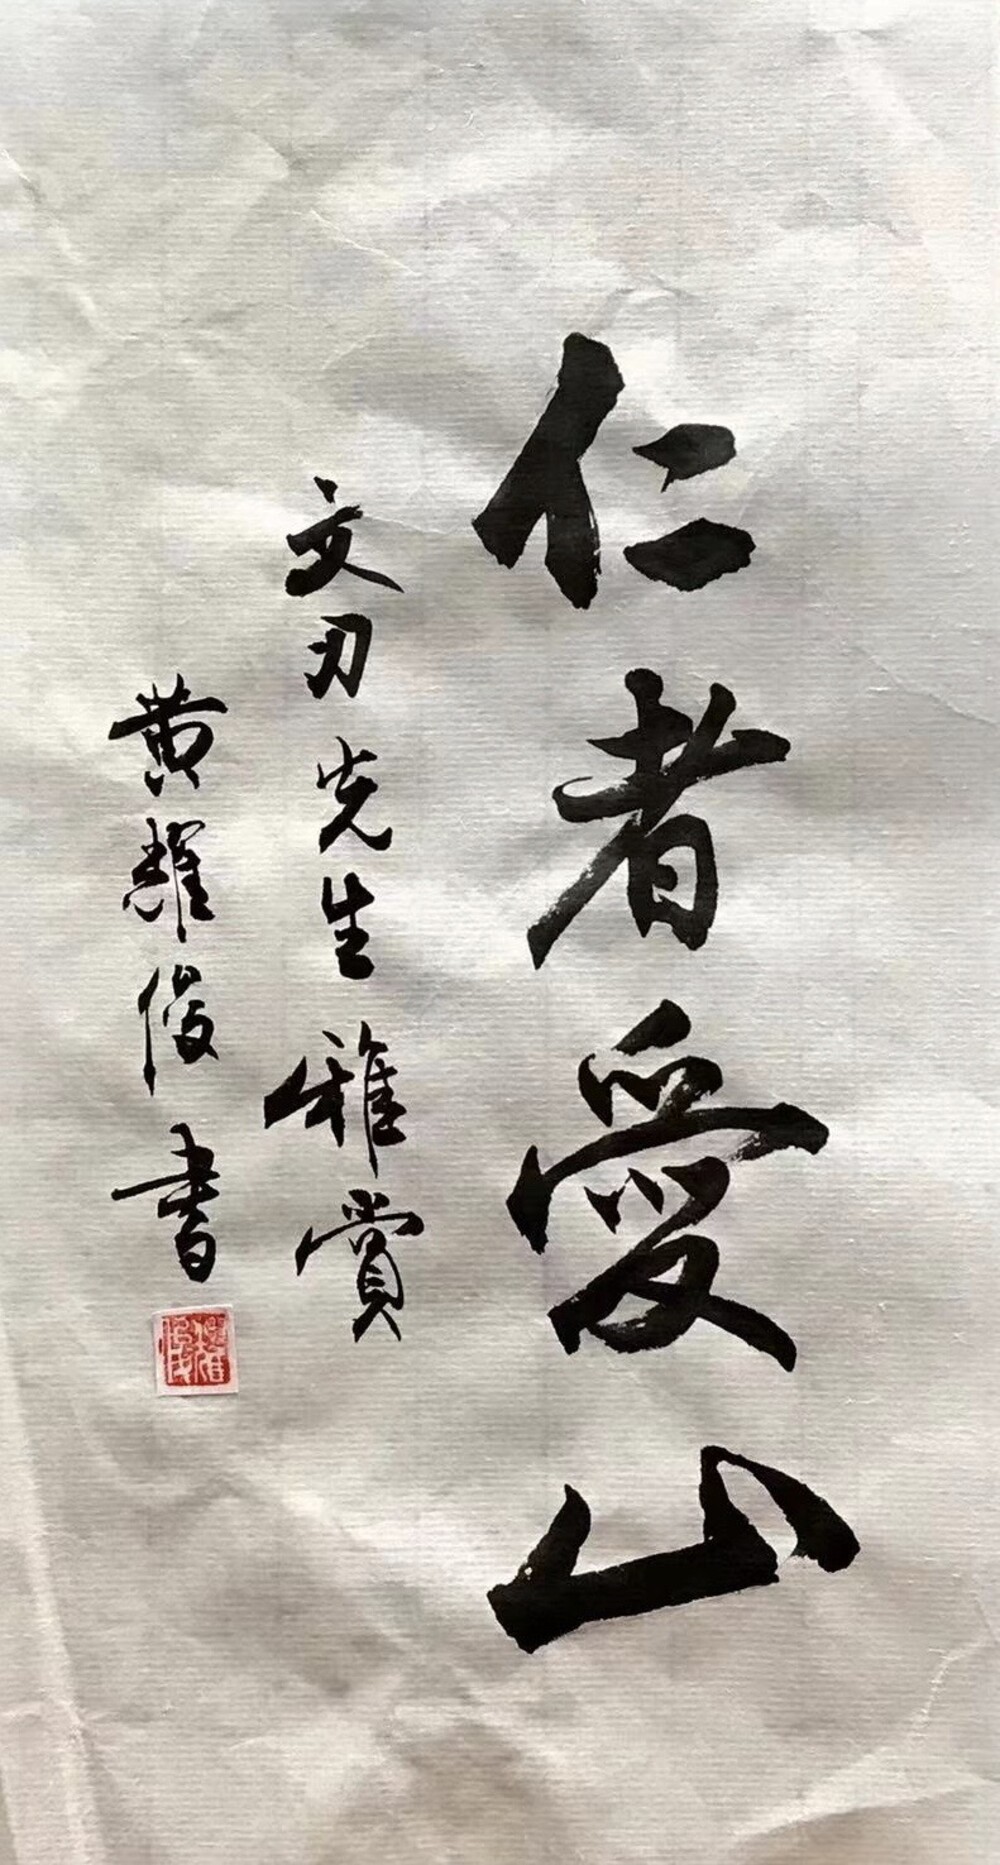 仁者愛山
文刃先生雅賞
黄耀俊書
耀俊